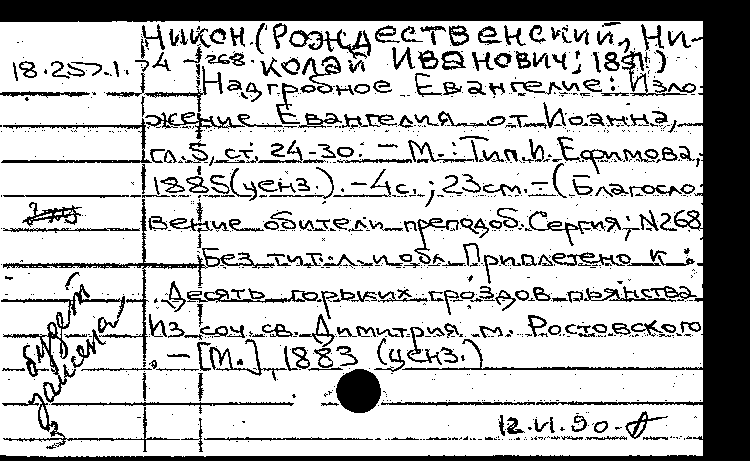 Никон. (Рождественский, Ни-
18.257.1. 4 - 268. колай Иванович; 1851)
Надгробное Евангелие: Изло-
жение Евангелия от Иоанна,
гл. 5, ст. 24-30. - М.: Тип. И. Ефимова,
1885 (ценз.). - 4с.; 23см. - (Благосло-
вение обители преподоб. Сергия; N268
Без тит. л. и обл. Приплетено к :
. Десять горьких гроздов пьянства
Из соч. св. Димитрия м. Ростовского
. - [М.], 1883 (ценз.)
будет
замена
3
12.VI.90.